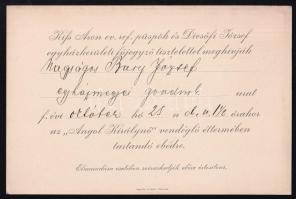 Kiss Áron ev. ref. püspök és Dicsőfi József
egyházkerületi főjegyző tisztelettel meghívják
Nagyságos Bary József
egyházmegyei gondnok urat
f. évi október hó 25 n d. u. 1/2 órakor
az „Angol Királynő” vendéglő éttermében
tartandó ebédre.
Elmaradása esetében szíveskedjék előre értesíteni.